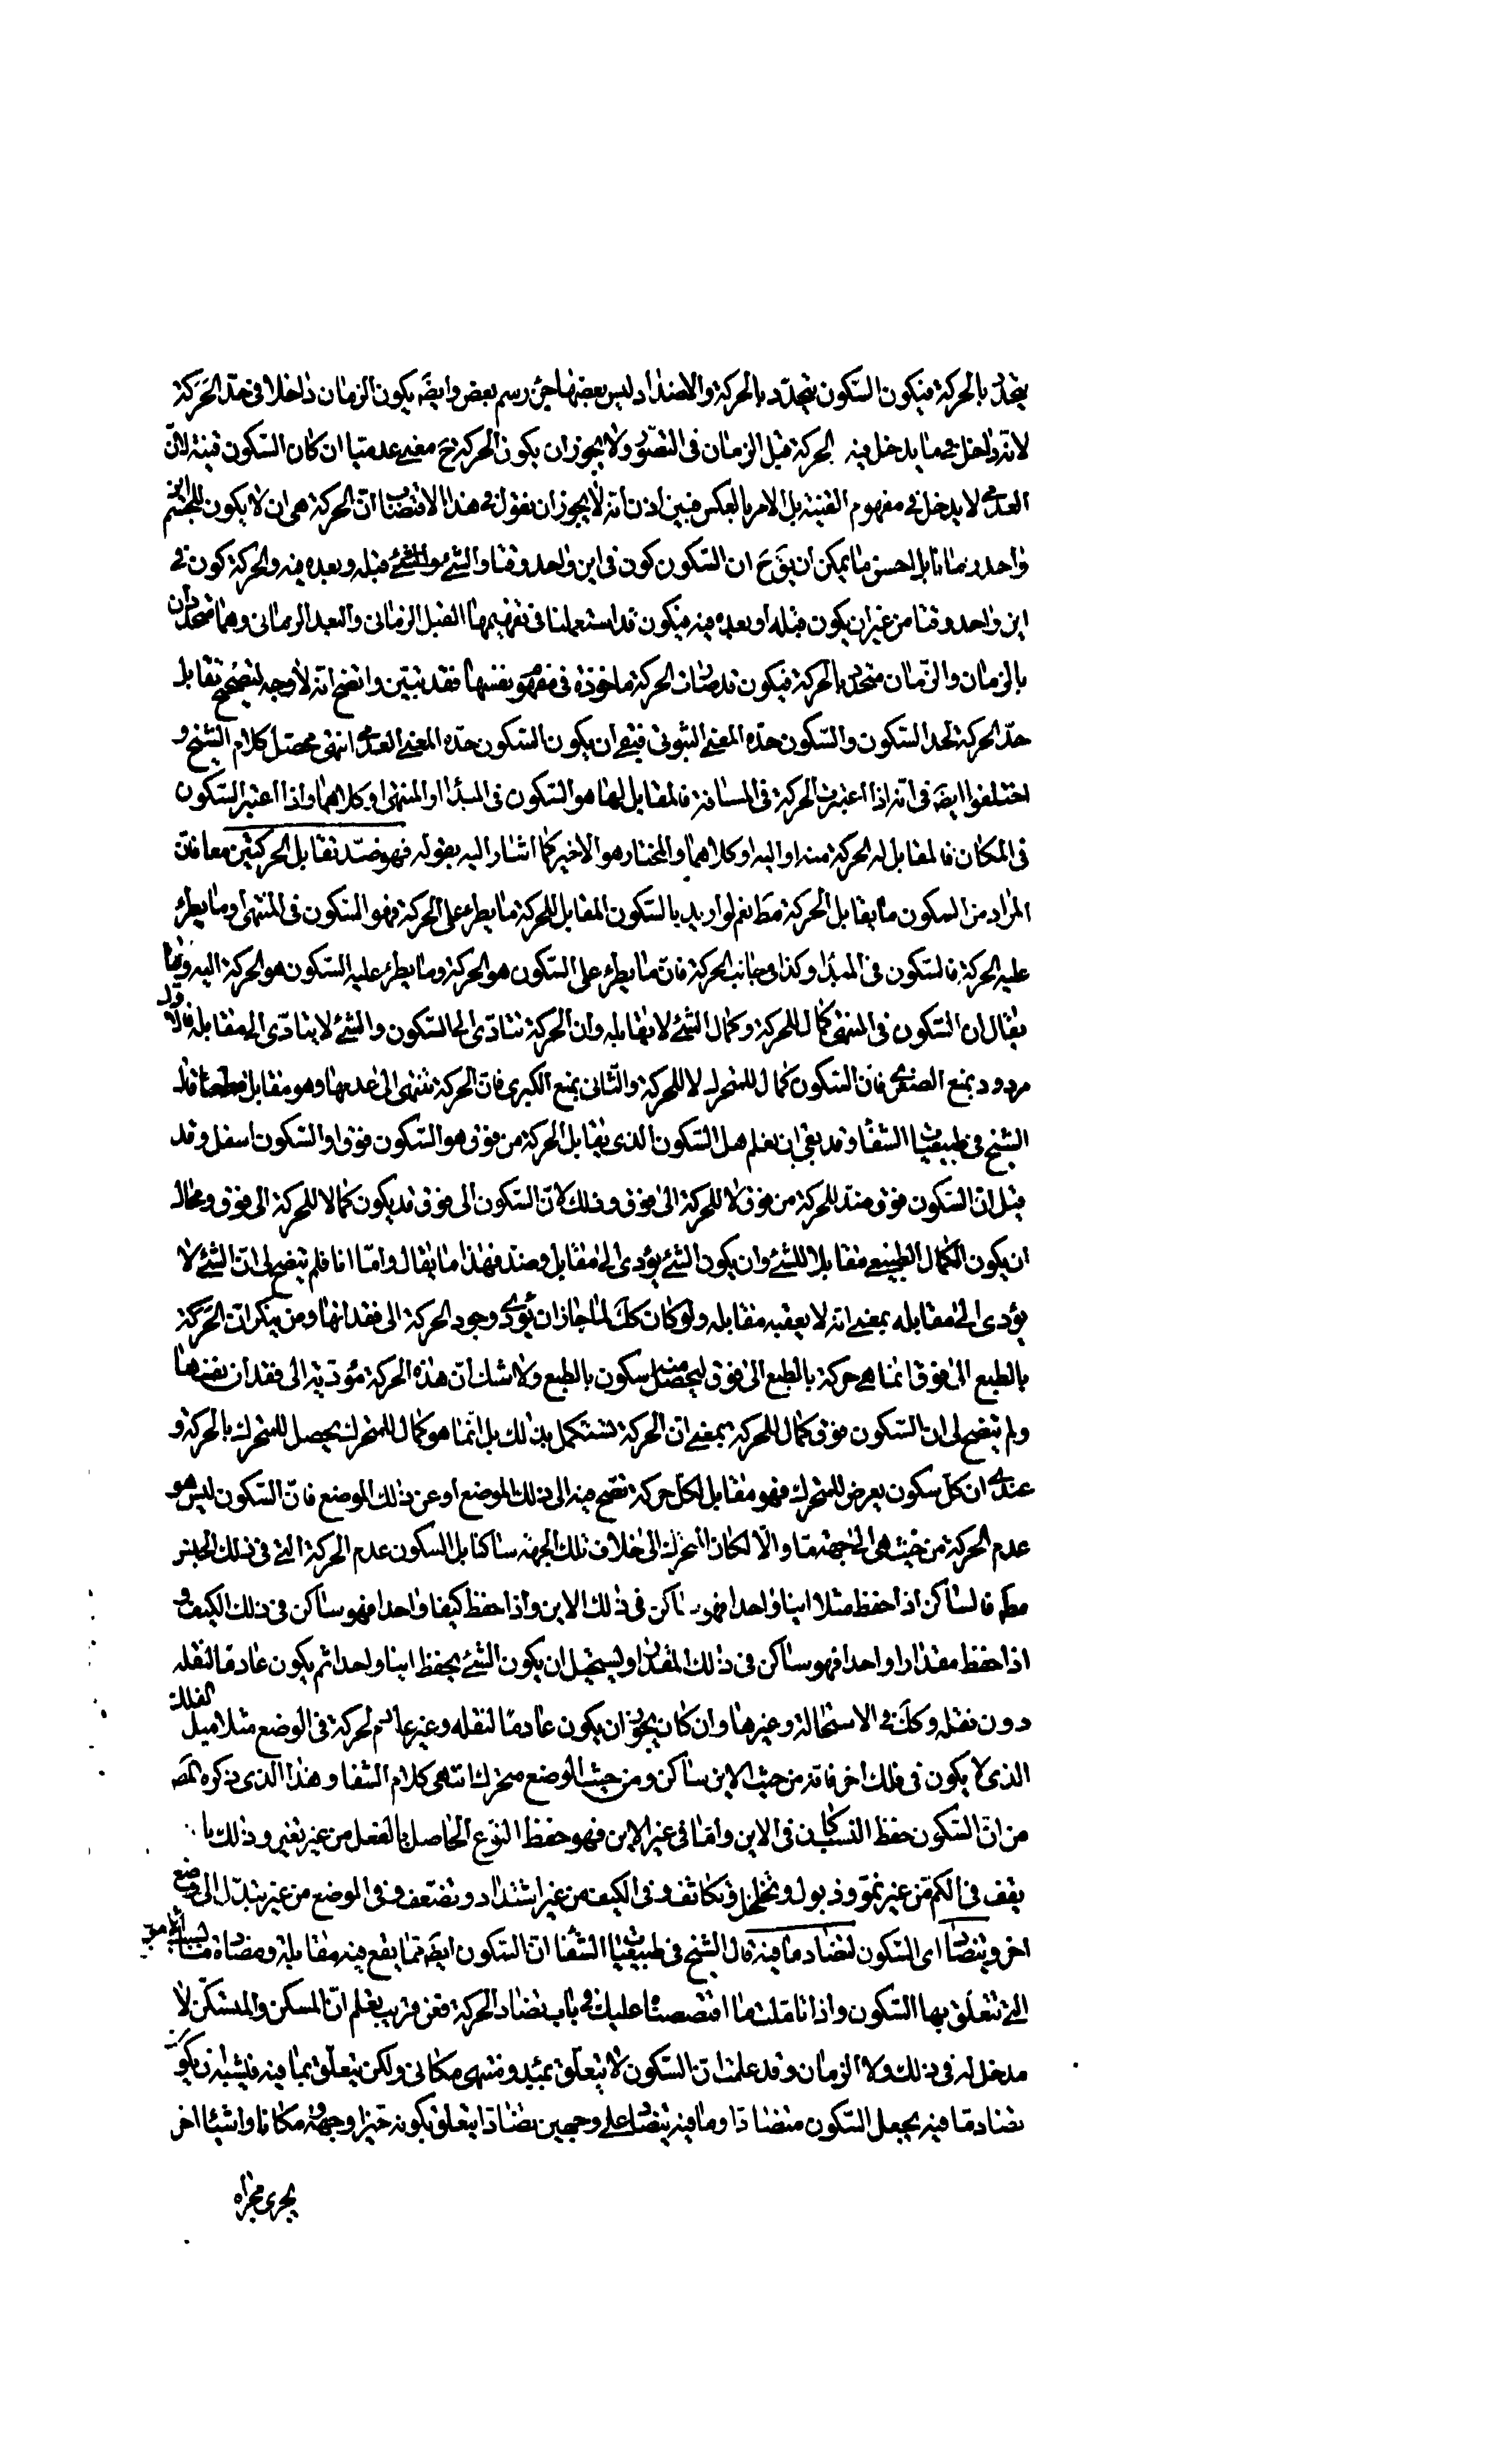 يتحدّد بالحركة فيكون السّكون يتحدّد بالحركة والاضداد ليس بعضها جزء رسم بعض وايضَه يكون الزمان داخلا فى حدّ الحَرَكة
لانّه داخل فى ما يدخل فيه الحركة قبل الزمان فى التصوّر ولا يجوز ان يكون الحركة ح معنى عدميّا ان كان السّكون قنية لانّ
العدمى لا يدخل فى مفهوم القنية بل الامر بالعكس فبيّن اذن انّه لا يجوز ان نقول فى هذا الاقتضاب انّ الحركة هى ان لا يكون للجسم اين
واحد زمانا بل احسن ما يمكن ان يقَ ح ان السّكون كون فى اين واحد وقتا والشئ قبله وبعده فيه والحركة كون فى
اين واحد وقتا من غير ان يكون قبله او بعده فيه فيكون قد استعملنا فى تفهيمها القبل الزمانى والبعد الزمانى وهما متحدّدان
بالزمان والزّمان متحدّد بالحركة فيكون قد صارت الحركة ماخوذة فى مفهوم نفسها فقد تبيّن واتضح انّه لا وجه لتصحيح تقابل
حدّ الحركة لحد السّكون والسّكون حدّه المعنى الثبوتى فبقى ان يكون السّكون حدّه المعنى العدمى انتهى محصّل كلام الشّيخ و
اختلفوا ايضَه فى انّه اذا اعتبرت الحركة فى المسافة فالمقابل لها هو السّكون فى المبدأ او المنتهى او كلاهما واذا اعتبر السّكون
فى المكان فالمقابل له الحركة منه او اليه او كلاهما والمختار هو الاخير كما اشار اليه بقوله فهو ضدّ تقابل الحركتين معا فانّ
المراد من السكون ما يقابل الحركة مطَ نعم لو اريد بالسّكون المقابل للحركة ما يطرء على الحركة فهو السّكون فى المنتهى او ما يطرء
عليه الحركة فالسّكون فى المبدأ وكذا فى جانب الحركة فانّ ما يطرء على السّكون هو الحركة وما يطرء عليه السّكون هو الحركة اليه وما
يقال ان السّكون فى المنتهى كمال للحركة وكمال الشّئ لا يقابله وان الحركة تتادّى الى السّكون والشّئ لا يتادّى الى مقابله
مردود بمنع الصغرى فان السّكون كمال للمتحرك لا للحركة والثّانى بمنع الكبرى فانّ الحركة تنتهى الى عدمها وهو مقابل قال
الشّيخ فى طبيعيّات الشّفا وقد بقى ان نعلم هل السّكون الذى يقابل الحركة من فوق هو السّكون فوق او السّكون اسفل وقد
قيل انّ السّكون فوق ضدّ للحركة من فوق لا للحركة الى فوق وذلك لانّ السّكون الى فوق قد يكون كمالا للحركة الى فوق ومحال
ان يكون الكمال الطبيعى مقابلا للشّئ وان يكون الشّئ يؤدى الى مقابل وضدّ فهذا ما يقال وامّا انا فلم يتضح لى انّ الشّئ لا
يؤدى الى مقابله بمعنى انّه لا يعقبه مقابله ولو كان كلَ لما جاز ان يؤدّى وجود الحركة الى فقدانها ومن ينكر انّ الحَرَكة
بالطبع الى فوق انّما هى حركة بالطبع الى فوق ليحصل منه سكون بالطبع ولا شك انّ هذه الحركة مؤدّية الى فقدان نفسها
ولم يتضح لى ان السّكون فوق كمال للحركة بمعنى انّ الحركة تستكمل بذلك بل انّما هو كمال للمتحرك يحصل للمتحرك بالحركة و
عندى ان كلّ سكون يعرض للمتحرك فهو مقابل لكلّ حركة تصحّ فيه الى ذلك الموضع او عن ذلك الموضع فانّ السّكون ليس هو
عدم الحركة من حيث هى الى جهة ما والّا لكان المتحرّك الى خلاف تلك الجهة ساكنا بل السكون عدم الحركة التى فى ذلك الجنس
مطَ فالساكن اذا حفظ مثلا اينا واحدا فهو ساكن فى ذلك الاين واذا حفظ كيفا واحدا فهو ساكن فى ذلك الكيف و
اذا حفظ مقدارا واحدا فهو ساكن فى ذلك المقدار ويستحيل ان يكون الشّئ يحفظ اينا واحدا ثم يكون عادما لنقله
دون نقله وكلَ فى الاستحالة وغيرها وان كان يجوز ان يكون عادما لنقله وغير عادم لحركة فى الوضع مثلا ميل الفلك
الذى لا يكون فى فلك اخر فانّه من حيث الاين ساكن ومن حيث الوضع متحرك انتهى كلام الشّفا وهذا الّذى ذكره المصَ
من انّ السّكون حفظ النّسب كان فى الاين وامّا فى غير الاين فهو حفظ النّوع الحاصل بالفعل من غير تغير وذلك با
يقف فى الكم من غير نموّ وذبول وتخلخل وتكاثف وفى الكيف من غير اشتداد وتضعّف وفى الوضع من غير تبدّل الى وضع
اخر ويتضادّ اى السّكون لتضاد ما فيه قال الشّيخ فى طبيعيّات الشّفا انّ السّكون ايضَه ممّا يقع فيه مقابلة ومضادّة
التى تتعلّق بها السّكون واذا تامّلت ما اقتصصنا عليك فى باب تضاد الحركة فعن قريب تعلم انّ المسكن والمتسكّن لا
مدخل له فى ذلك ولا الزمان وقد علمت انّ السّكون لا يتعلّق بمبدء ومنتهى مكانى ولكن يتعلّق بما فيه فيشبه ان يكون
تضاد ما فيه يجعل السّكون متضادّا وما فيه يتضادّ على وجهين تضادّا يتعلق بكونه حيّزا وجهة مكانا واشيئا اخر
يجرى مجراه